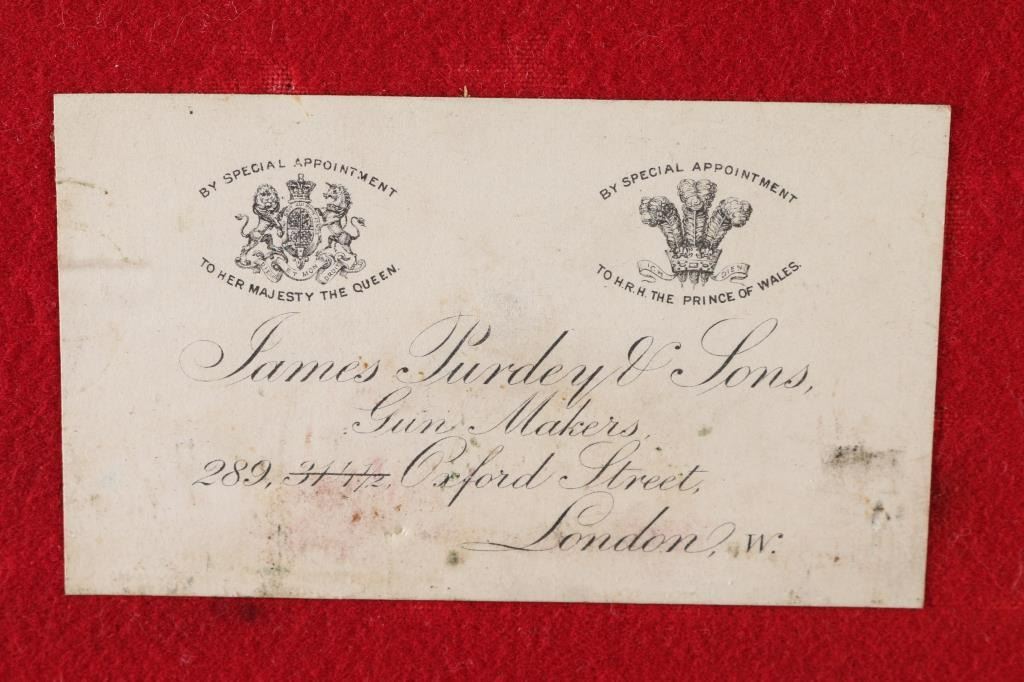 BY SPECIAL APPOINTMENT
ET MON
TO HER MAJESTY THE QUEEN.
BY SPECIAL APPOINTMENT
ICH DIEN
TO H.R.H. THE PRINCE OF WALES.
James Purdey & Sons,
Gun Makers,
289, 314 1/2, Oxford Street,
London, W.